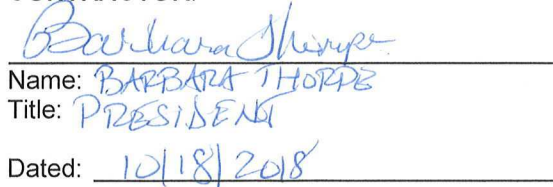 Barbara Thorpe
Name: BARBARA THORPE
Title: PRESIDENT
Dated: 10/18/2018